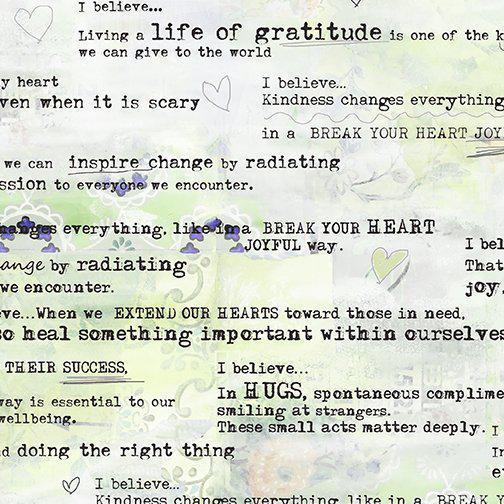 I believe...
Living a life of gratitude is one of the k
we can give to the world
y heart
ven when it is scary
I believe...
Kindness changes everything
in a BREAK YOUR HEART JOY
we can inspire change by radiating
ssion to everyone we encounter.
changes everything, like in a BREAK YOUR HEART
JOYFUL way.
ange by radiating
we encounter.
I bel
That
joy.
eve...When we EXTEND OUR HEARTS toward those in need,
so heal something important within ourselves
THEIR SUCCESS,
way is essential to our
wellbeing.
I believe...
In HUGS, spontaneous complime
smiling at strangers.
These small acts matter deeply.
d doing the right thing
I
In
e
I believe...
Kindness changes everything like in a BREAK Y